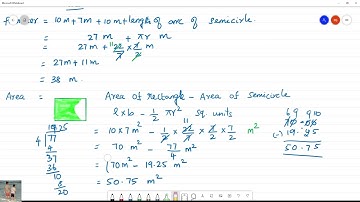 = 10m + 7m + 10m + length of arc of semicircle.
= 27 m + πr m
= 27m + 11 22/7 × 7/2 m
= 27m + 11m
= 38 m.
Area = Area of rectangle - Area of semicircle
l × b - 1/2 πr² sq. units
= 10 × 7 m² - 1/2 × 22/7 × 7/2 × 7/2 m²
= 70 m² - 77/4 m²
= (70m² - 19.25 m²
= 50.75 m²
19.25
4 77
4
37
36
10
8
20
6 9 9 10
(-) 19.
50.75